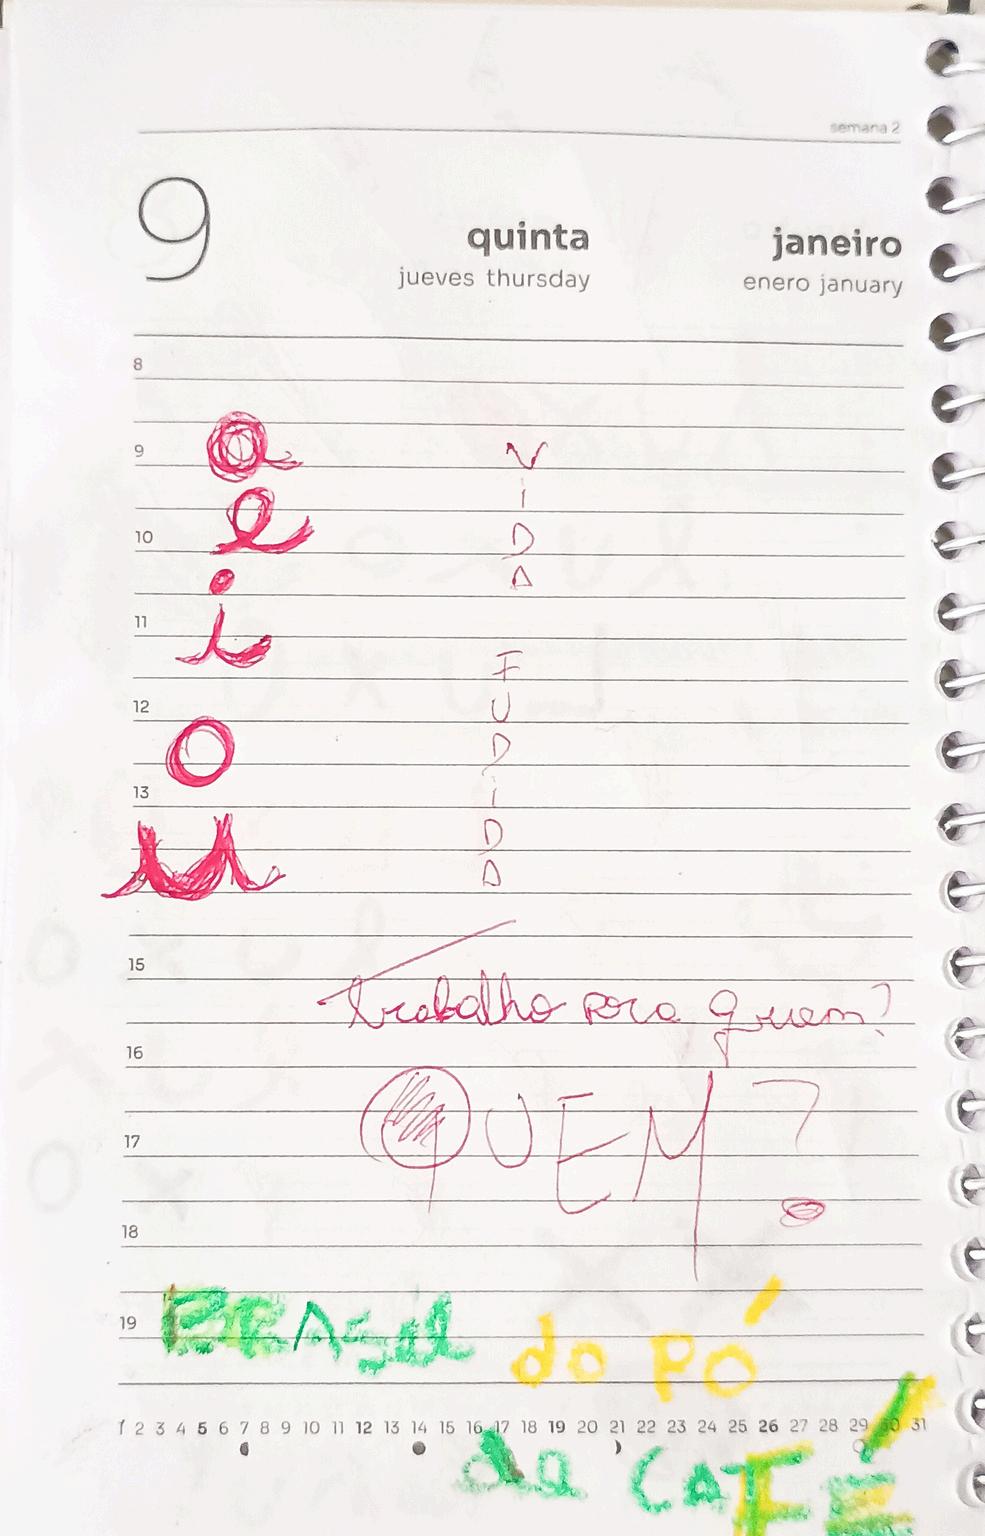 semana 2
9 quinta janeiro
jueves thursday enero january
8
9
10
11
12
13
15
16
17
18
19
a
e
i
o
u
V
I
D
A
F
U
D
I
D
A
Trabalho pora quem?
QUEM?
BRASil do PÓ
de CAFÉ
1 2 3 4 5 6 7 8 9 10 11 12 13 14 15 16 17 18 19 20 21 22 23 24 25 26 27 28 29 30 31